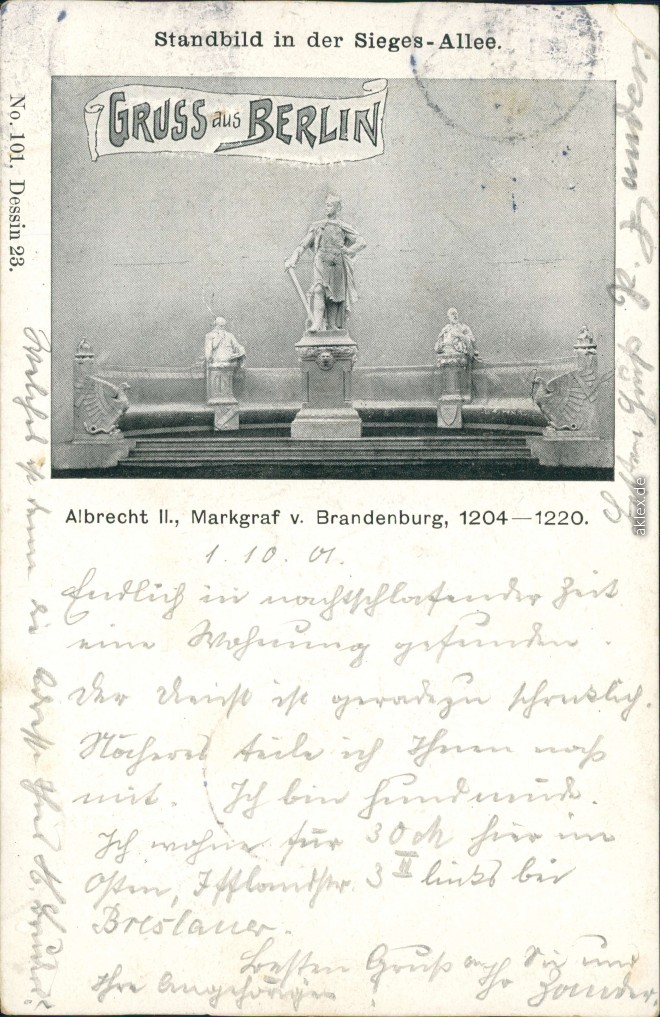 Standbild in der Sieges-Allee.
GRUSS aus BERLIN
No. 101, Dessin 23.
Albrecht II., Markgraf v. Brandenburg, 1204—1220.
1. 10. 01.
Endlich in nachtschlafender Zeit
eine Wohnung gefunden.
Der Dienst ist geradezu schrecklich.
Näheres teile ich Ihnen noch
mit. Ich bin hundmüde.
Ich wohne für 30 M hier im
Osten, Ifflandstr. 3 II links bei
Breslauer.
Besten Gruß an Sie und
Ihre Angehörigen Ihr Zander.
Welches ist denn die Adresse
aklex.de